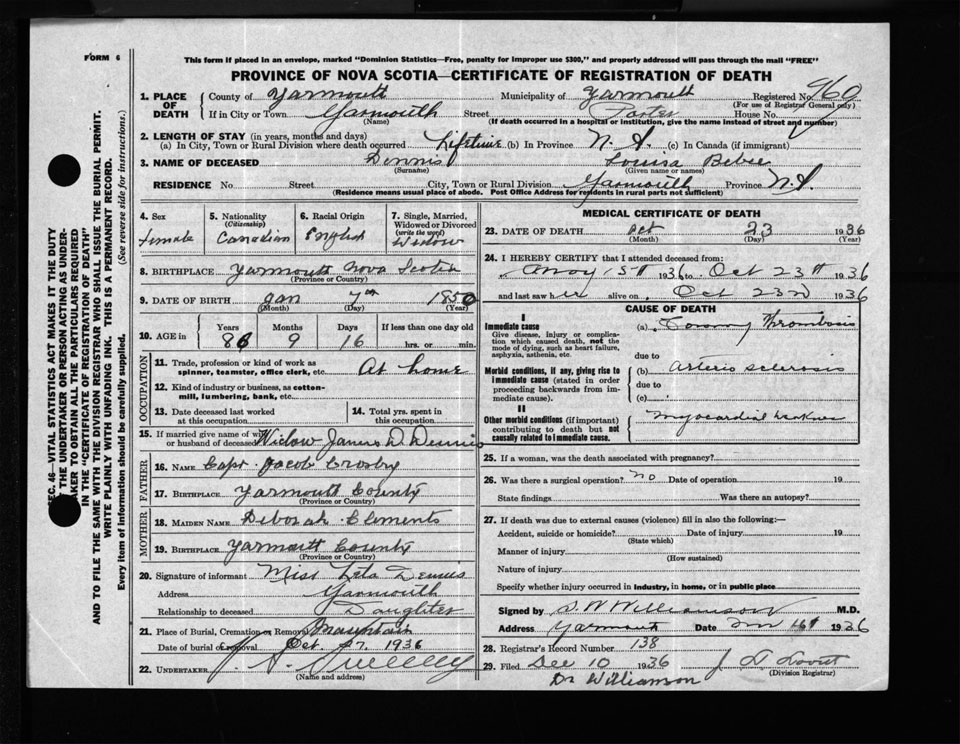 FORM 6
This form if placed in an envelope, marked "Dominion Statistics—Free, penalty for improper use $300," and properly addressed will pass through the mail "FREE"
PROVINCE OF NOVA SCOTIA—CERTIFICATE OF REGISTRATION OF DEATH
SEC. 46—VITAL STATISTICS ACT MAKES IT THE DUTY
THE UNDERTAKER OR PERSON ACTING AS UNDER-
TAKER TO OBTAIN ALL THE PARTICULARS REQUIRED
IN THE "CERTIFICATE OF REGISTRATION OF DEATH"
AND TO FILE THE SAME WITH THE DIVISION REGISTRAR WHO SHALL ISSUE THE BURIAL PERMIT.
WRITE PLAINLY WITH UNFADING INK. THIS IS A PERMANENT RECORD.
Every item of information should be carefully supplied. (See reverse side for instructions.)
1. PLACE OF DEATH County of Yarmouth Municipality of Yarmouth Registered No. 960
(For use of Registrar General only)
If in City or Town Yarmouth Street Porter House No.
(Name) (If death occurred in a hospital or institution, give the name instead of street and number)
2. LENGTH OF STAY (in years, months and days)
(a) In City, Town or Rural Division where death occurred Lifetime (b) In Province N.S. (c) In Canada (if immigrant)
3. NAME OF DECEASED Dennis Louisa Bebee
(Surname) (Given name or names)
RESIDENCE No. Street City, Town or Rural Division Yarmouth Province N.S.
(Residence means usual place of abode. Post Office Address for residents in rural parts not sufficient)
4. Sex Female
5. Nationality (Citizenship) Canadian
6. Racial Origin English
7. Single, Married, Widowed or Divorced (write the word) Widow
8. BIRTHPLACE Yarmouth Nova Scotia
(Province or Country)
9. DATE OF BIRTH Jan 7th 1850
(Month) (Day) (Year)
10. AGE in Years 86 Months 9 Days 16 If less than one day old hrs. or min.
OCCUPATION
11. Trade, profession or kind of work as spinner, teamster, office clerk, etc. At home
12. Kind of industry or business, as cotton-mill, lumbering, bank, etc.
13. Date deceased last worked at this occupation
14. Total yrs. spent in this occupation
15. If married give name of wife or husband of deceased Widow James D. Dennis
FATHER
16. NAME Capt. Jacob Crosby
17. BIRTHPLACE Yarmouth County
(Province or Country)
MOTHER
18. MAIDEN NAME Deborah Clements
19. BIRTHPLACE Yarmouth County
(Province or Country)
20. Signature of informant Miss Leta Dennis
Address Yarmouth
Relationship to deceased Daughter
21. Place of Burial, Cremation or Removal Mountain
Date of burial or removal Oct. 27. 1936
22. UNDERTAKER
(Name and address)
MEDICAL CERTIFICATE OF DEATH
23. DATE OF DEATH Oct 23 1936
(Month) (Day) (Year)
24. I HEREBY CERTIFY that I attended deceased from:
May 15th 1936 to Oct 23rd 1936
and last saw her alive on Oct 23rd 1936
CAUSE OF DEATH
I
Immediate cause
Give disease, injury or complication which caused death, not the mode of dying, such as heart failure, asphyxia, asthenia, etc.
(a) Coronary Thrombosis
due to
Morbid conditions, if any, giving rise to immediate cause (stated in order proceeding backwards from immediate cause).
(b) Arterio sclerosis
due to
(c)
II
Other morbid conditions (if important) contributing to death but not causally related to immediate cause.
Myocardial weakness
25. If a woman, was the death associated with pregnancy?
26. Was there a surgical operation? no Date of operation 19
State findings Was there an autopsy?
27. If death was due to external causes (violence) fill in also the following:—
Accident, suicide or homicide? Date of injury 19
(State which)
Manner of injury
(How sustained)
Nature of injury
Specify whether injury occurred in industry, in home, or in public place
Signed by S. W. Williamson M.D.
Address Yarmouth Date 1936
28. Registrar's Record Number 138
29. Filed Dec 10 1936
(Division Registrar)
Dr Williamson